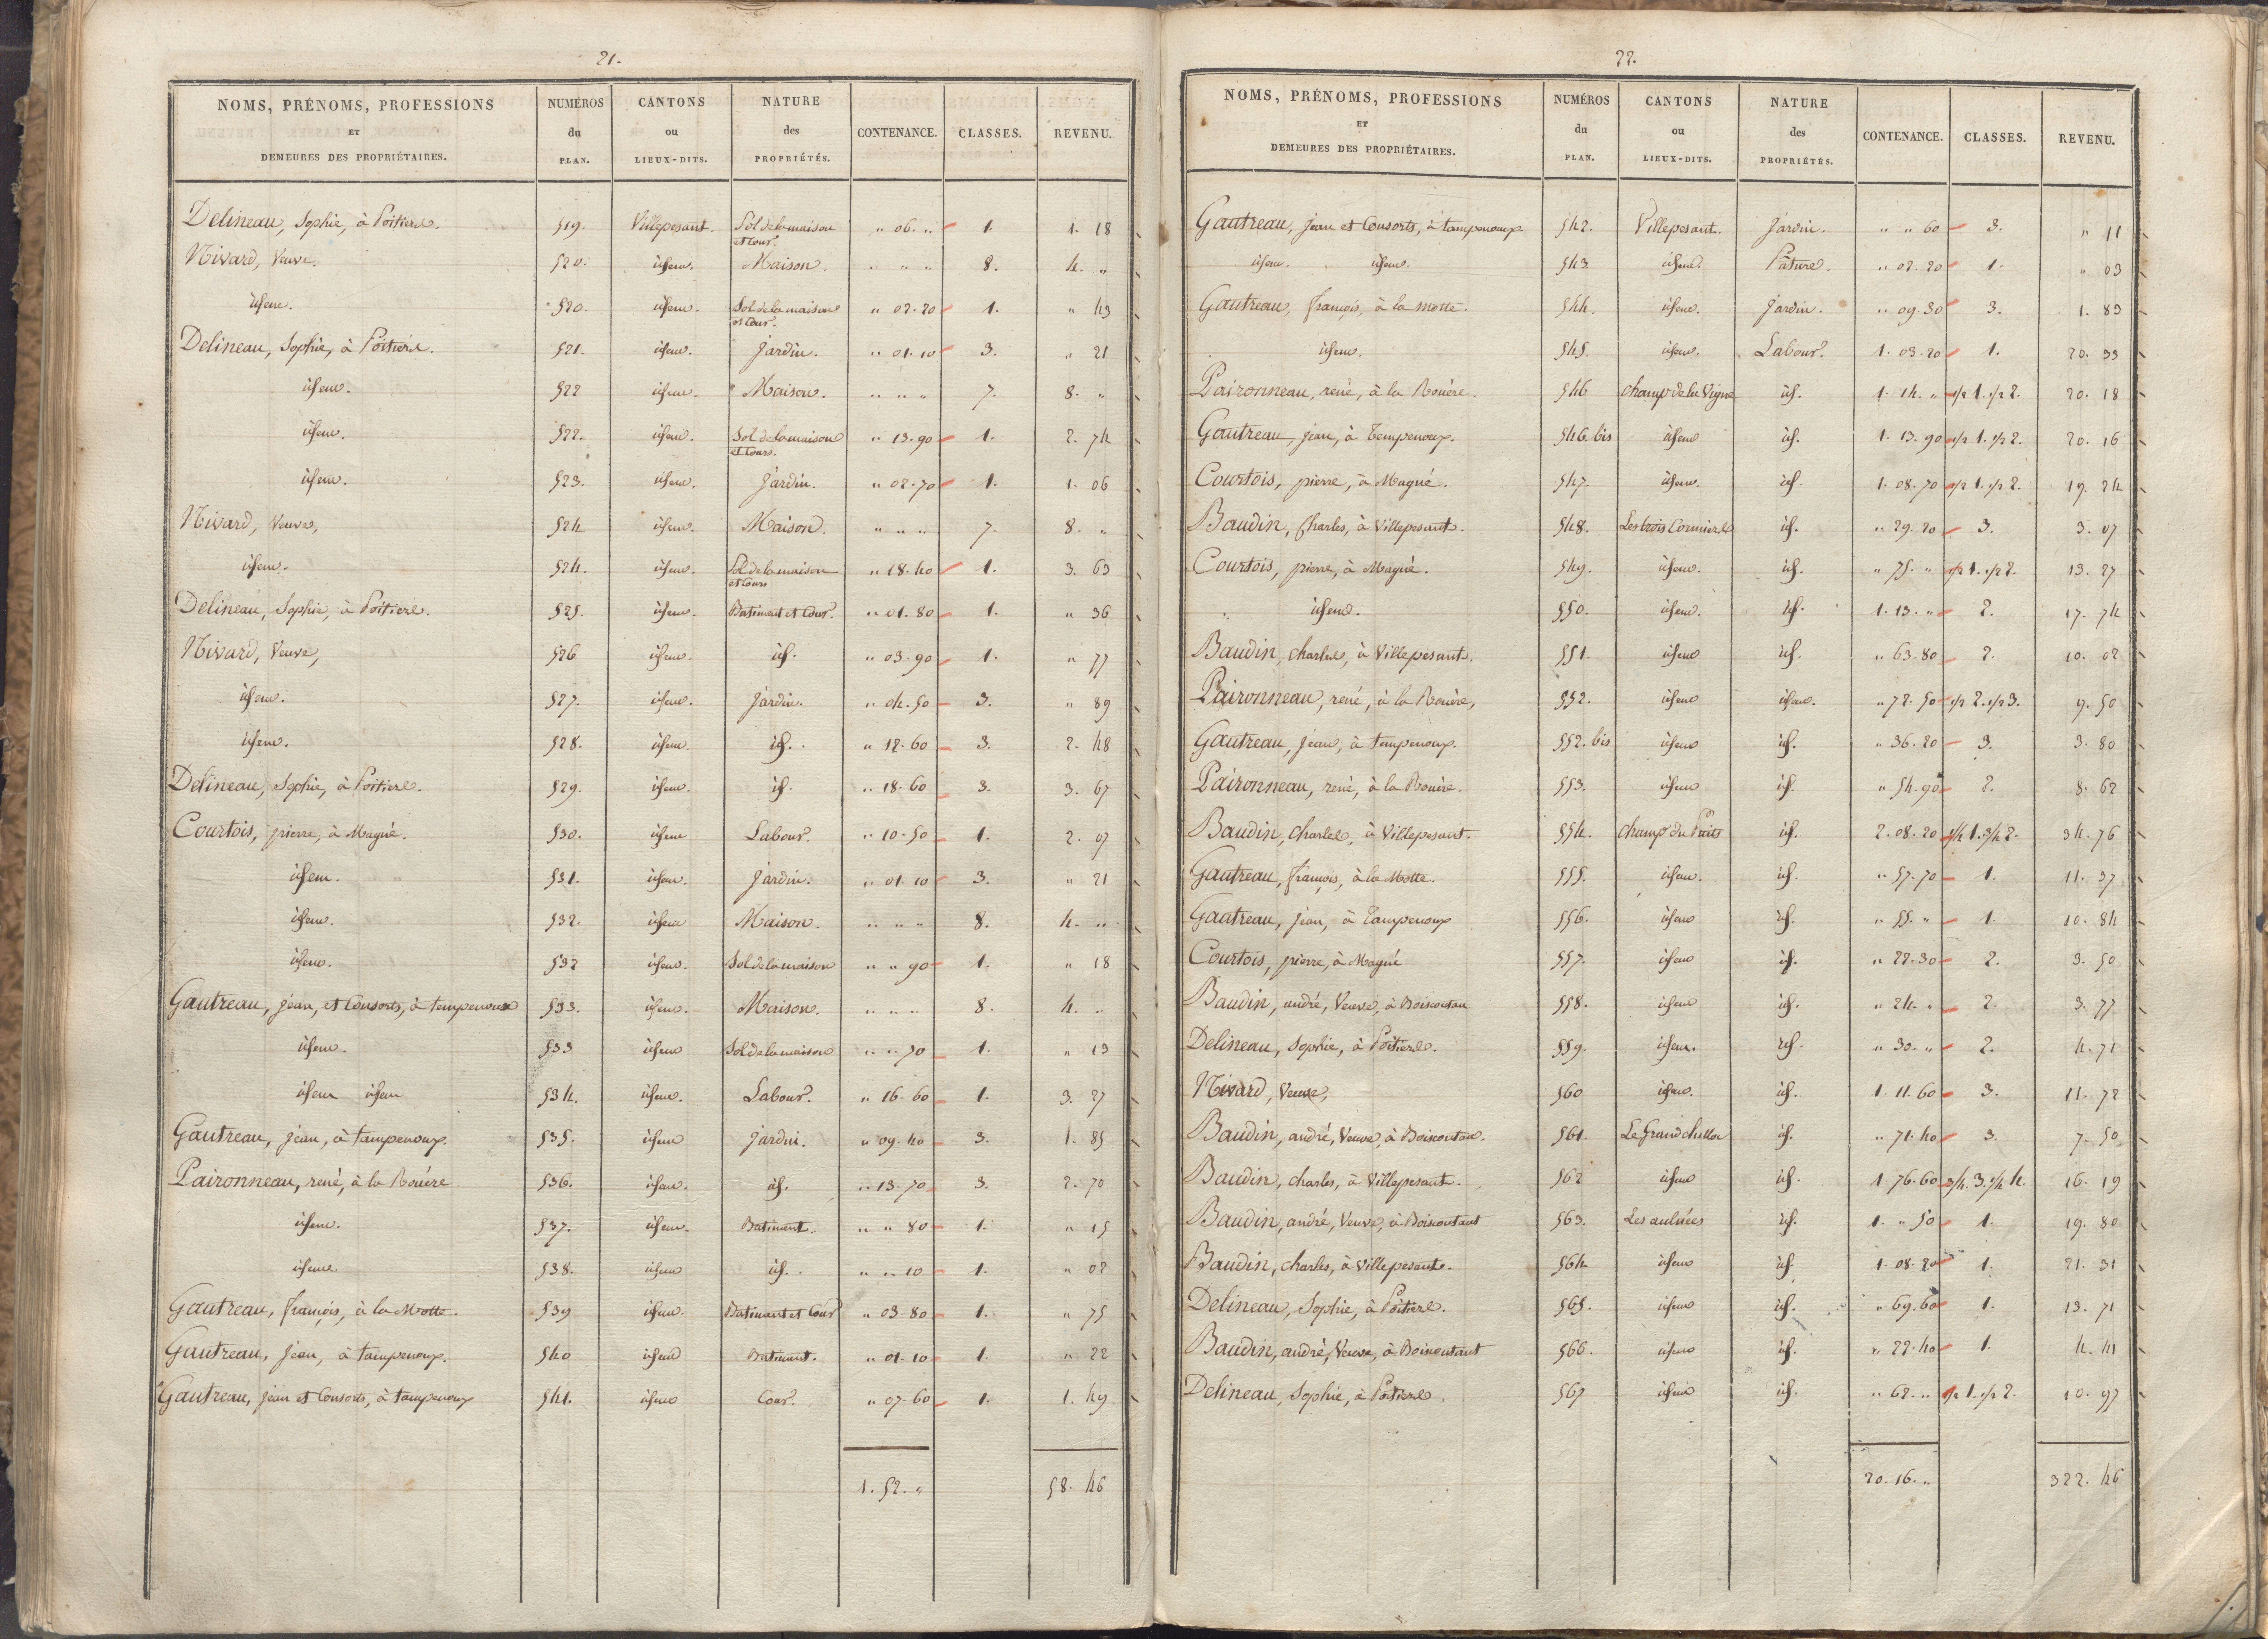 21.
NOMS, PRÉNOMS, PROFESSIONS ET DEMEURES DES PROPRIÉTAIRES. NUMÉROS du PLAN. CANTONS ou LIEUX-DITS. NATURE des PROPRIÉTÉS. CONTENANCE. CLASSES. REVENU.
Delineau, Sophie, à Poitiers. 519. Villepesant. Sol de la maison et Cour. " 06. " 1. 1. 18
Nivard, Veuve. 520. idem. Maison. " " " 8. 4. "
idem. 520. idem. Sol de la maison et Cour. " 02. 20 1. " 43
Delineau, Sophie, à Poitiers. 521. idem. Jardin. " 01. 10 3. " 21
idem. 522 idem. Maison. " " " 7. 8. "
idem. 522. idem. Sol de la maison et Cour. " 13. 90 1. 2. 74
idem. 523. idem. Jardin. " 02. 70 1. 1. 06
Nivard, Veuve, 524 idem. Maison. " " " 7. 8. "
idem. 524. idem. Sol de la maison et Cour " 18. 40 1. 3. 63
Delineau, Sophie, à Poitiers. 525. idem. Batiment et Cour. " 01. 80 1. " 36
Nivard, Veuve, 526 idem. id. " 03. 90 1. " 77
idem. 527. idem. Jardin. " 04. 50 3. " 89
idem. 528. idem. id. " 12. 60 3. 2. 48
Delineau, Sophie, à Poitiers. 529. idem. id. " 18. 60 3. 3. 67
Courtois, pierre, à Magné. 530. idem Labour. " 10. 50 1. 2. 07
idem. 531. idem. Jardin. " 01. 10 3. " 21
idem. 532. idem Maison. " " " 8. 4. "
idem. 532 idem. Sol de la maison " " 90 1. " 18
Gautreau, jean, et Consorts, à tempenoux 533. idem. Maison. " " " 8. 4. "
idem. 533 idem Sol de la maison " " 70 1. " 13
idem idem 534. idem. Labour. " 16. 60 1. 3. 27
Gautreau, jean, à tampenoux. 535. idem Jardin. " 09. 40 3. 1. 85
Paironneau, rené, à la Rouère 536. idem. id. " 13. 70 3. 2. 70
idem. 537. idem. Batiment. " " 80 1. " 15
idem. 538. idem id. " " 10 1. " 02
Gautreau, françois, à la Motte. 539 idem. Batiment et Cour " 03. 80 1. " 75
Gautreau, jean, à tampenoux. 540 idem Batiment. " 01. 10 1. " 22
Gautreau, jean et Consorts, à tampenoux 541. idem Cour. " 07. 60 1. 1. 49
1. 52. " 58. 46
22.
NOMS, PRÉNOMS, PROFESSIONS ET DEMEURES DES PROPRIÉTAIRES. NUMÉROS du PLAN. CANTONS ou LIEUX-DITS. NATURE des PROPRIÉTÉS. CONTENANCE. CLASSES. REVENU.
Gautreau, jean et Consorts, à tampenoux 542. Villepesant. Jardin. " " 60 3. " 11
idem. idem. 543 idem. Pâture. " 02. 20 1. " 03
Gautreau, françois, à la motte. 544. idem. Jardin. " 09. 30 3. 1. 83
idem. 545. idem. Labour. 1. 03. 20 1. 20. 33
Paironneau, rené, à la Rouère. 546 champ de la Vigne id. 1. 14. " 1/2 1. 1/2 2. 20. 18
Gautreau, jean, à tempenoux. 546. bis idem id. 1. 13. 90 1/2 1. 1/2 2. 20. 16
Courtois, pierre, à Magné. 547. idem. id. 1. 08. 70 1/2 1. 1/2 2. 19. 24
Baudin, Charles, à Villepesant. 548. Les trois Cormiers id. " 29. 20 3. 3. 07
Courtois, pierre, à Magné. 549. idem. id. " 75. " 1/2 1. 1/2 2. 13. 27
idem. 550. idem. id. 1. 13. " 2. 17. 74
Baudin, charles, à Villepesant. 551. idem id. " 63. 80 2. 10. 02
Paironneau, rené, à la Rouère, 552. idem idem. " 72. 50 1/2 2. 1/2 3. 9. 50
Gautreau, Jean, à tempenoux. 552. bis idem id. " 36. 20 3. 3. 80
Paironneau, rené, à la Rouère. 553. idem id. " 54. 90 2. 8. 62
Baudin, Charles, à Villepesant. 554. champ du Puits id. 2. 08. 20 1/4 1. 3/4 2. 34. 76
Gautreau, françois, à la Motte. 555. idem. id. " 57. 70 1. 11. 37
Gautreau, jean, à tampenoux 556. idem id. " 55. " 1. 10. 84
Courtois, pierre, à Magné 557. idem id. " 22. 30 2. 3. 50
Baudin, andré, Veuve, à Boiscoutau 558. idem id. " 24. " 2. 3. 77
Delineau, Sophie, à Poitiers. 559. idem. id. " 30. " 2. 4. 71
Nivard, Veuve, 560 idem. id. 1. 11. 60 3. 11. 72
Baudin, andré, Veuve, à Boiscoutau. 561. Le Grand chillou id. " 71. 40 3 7. 50
Baudin, charles, à Villepesant. 562 idem id. 1. 76. 60 3/4. 3. 1/4 4. 16. 19
Baudin, andré, Veuve, à Boiscoutant 563. Les aulnées id. 1. " 50 1. 19. 80
Baudin, charles, à Villepesant. 564 idem id. 1. 08. 20 1. 21. 31
Delineau, Sophie, à Poitiers. 565. idem id. " 69. 60 1. 13. 71
Baudin, andré, Veuve, à Boiscoutant 566. idem id. " 22. 40 1. 4. 41
Delineau, Sophie, à Poitiers. 567 idem id. " 62. " 1/2 1. 1/2 2. 10. 97
20. 16. " 322. 46